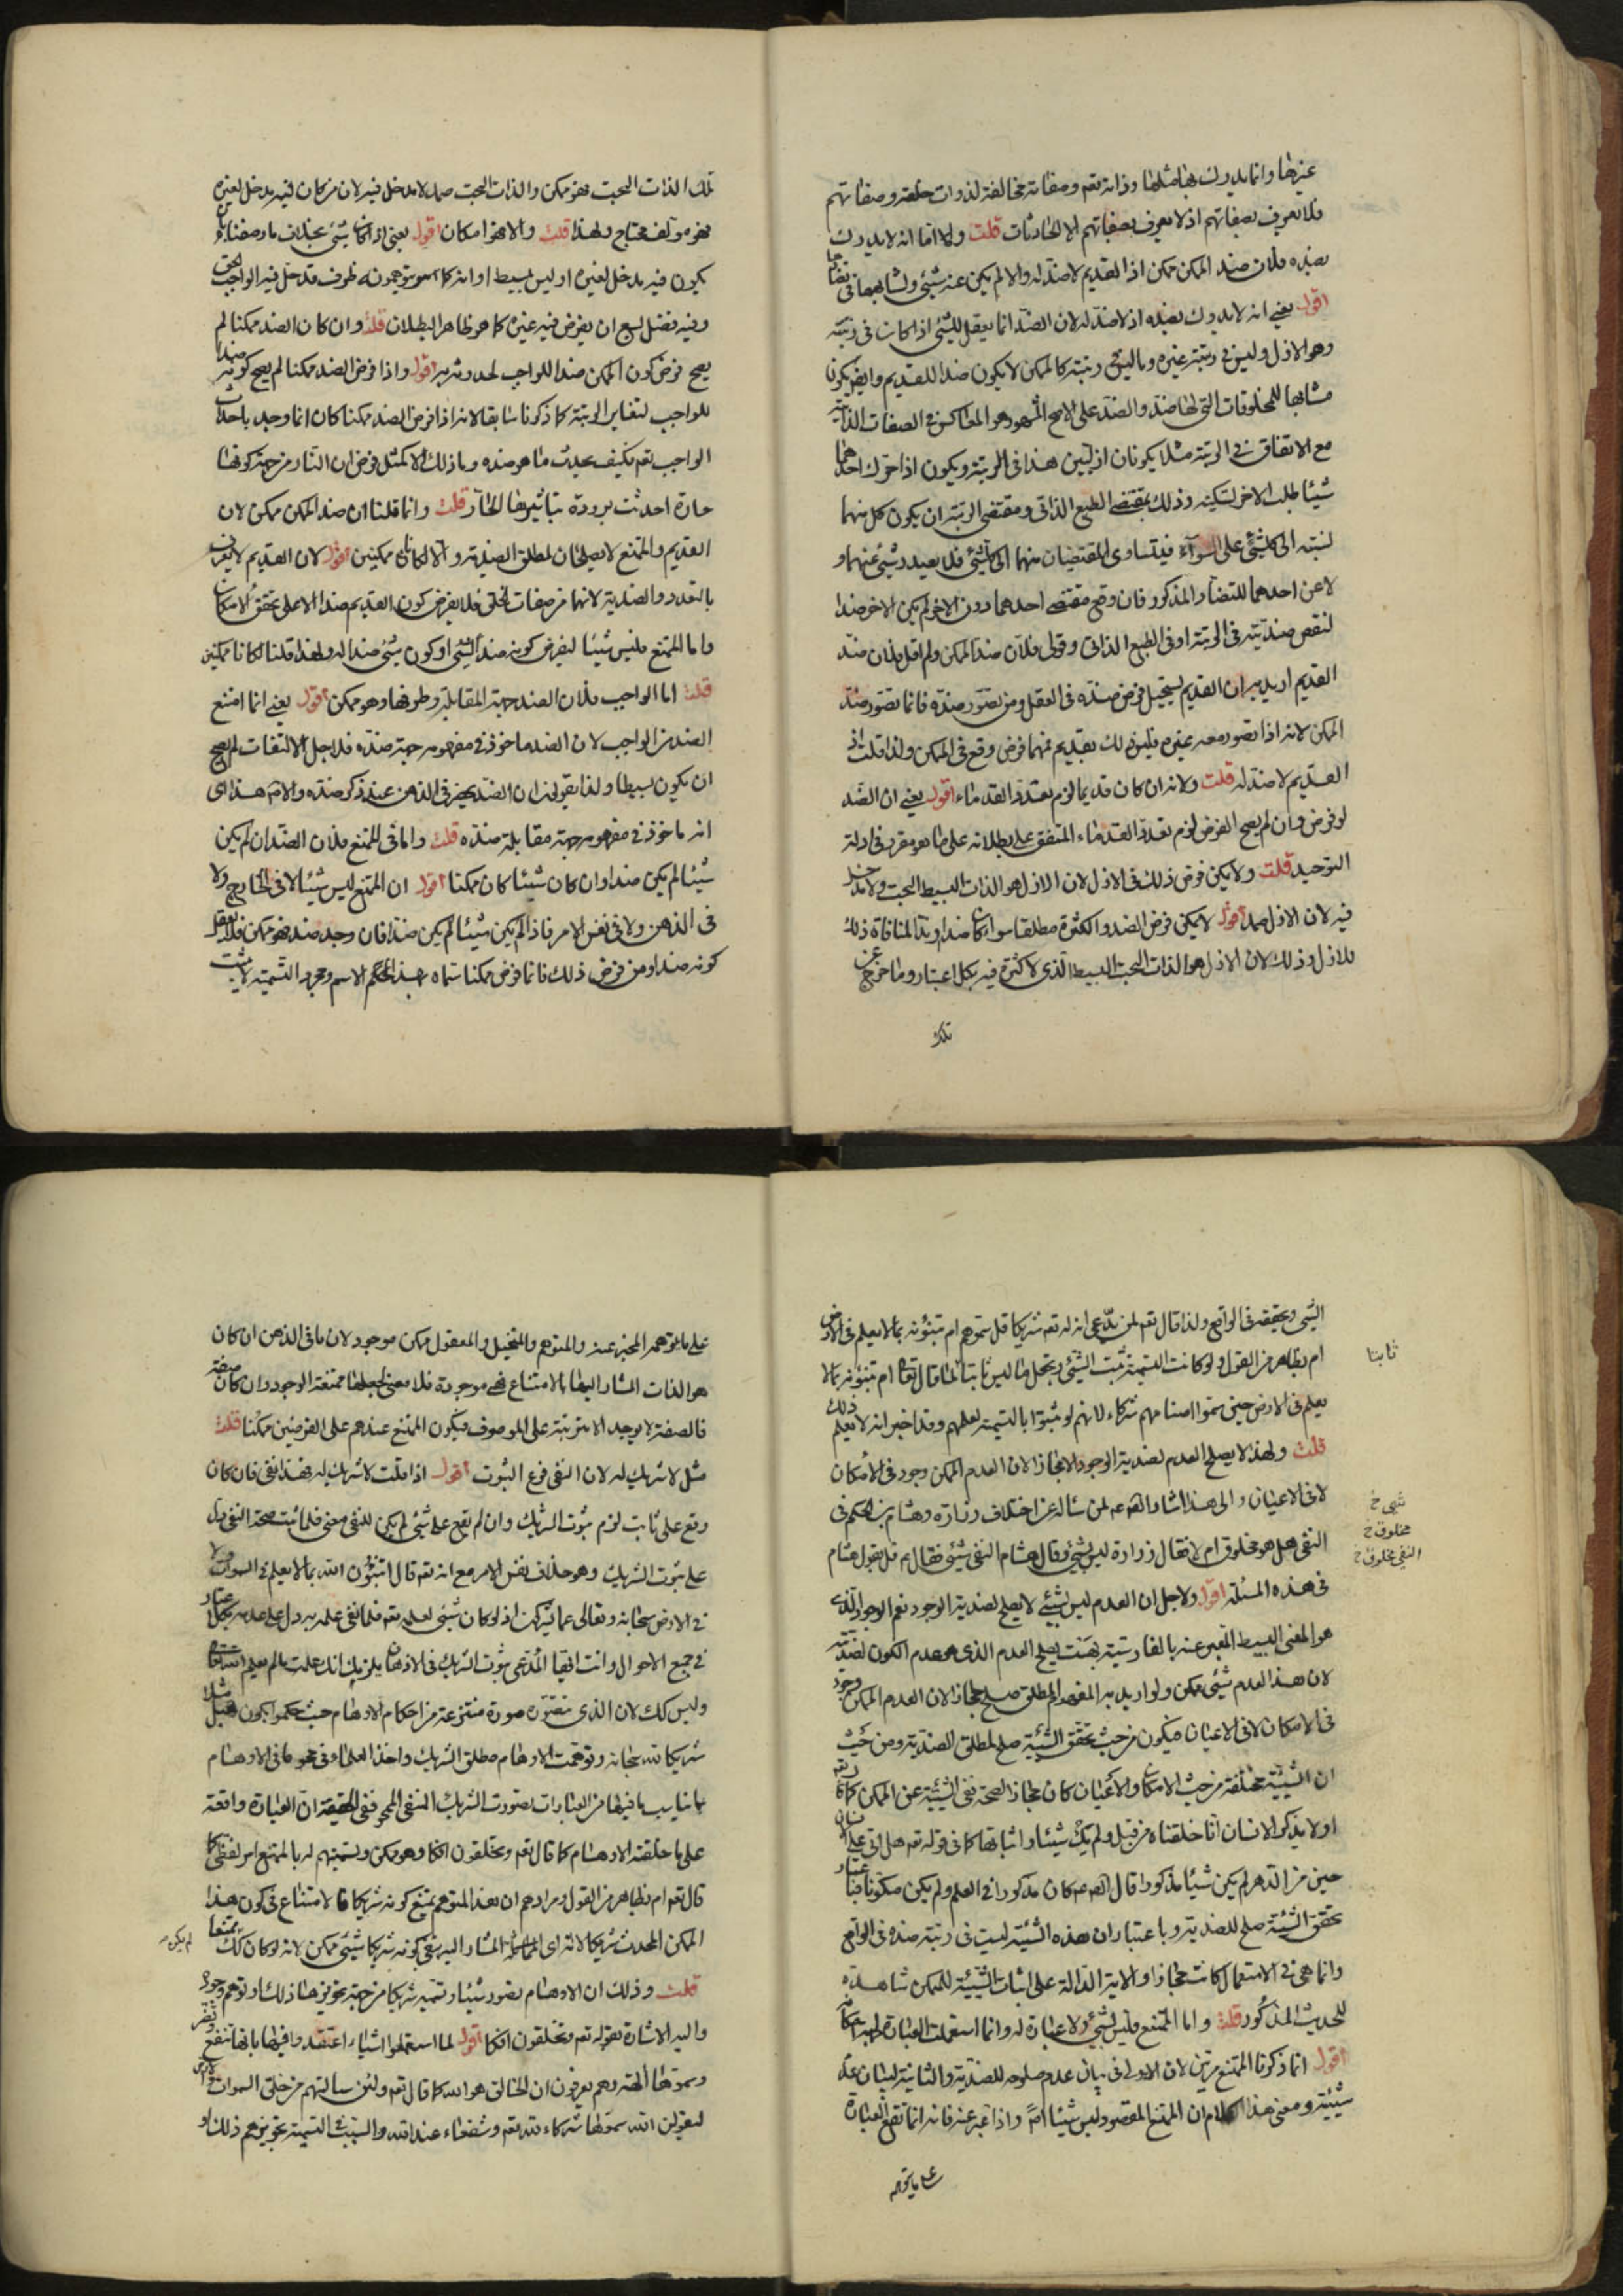 غيرها وانما يدرك بها مثلها وذاته تعم وصفاته مخالفة لذوات خلقه وصفاتهم
فلا تعرف بصفاتهم اذ لا يعرف بصفاتهم الا الحادثات قلت ولا انما انه لا يدرك
بضده فلان ضد الممكن ممكن اذ القديم لا ضد له والا لم يكن عنه شيئ ولشابهها في
اقول يعني انه لا يدرك بضده اذ لا ضد له لان الضد انما يعقل للشيئ اذا كان في رتبته
وهو الازل وليس في رتبته غيره وما ليس في رتبته كالممكن لا يكون ضدا للقديم وايضا يكون
مشابها للمخلوقات التي لها ضد والضد على الاصح المشهور هو المعاكس في الصفات الذاتية
مع الاتفاق في الرتبة مثلا يكونان ازليين هذا في الرتبة ويكون اذا حرك احدهما
شيئا طلب الاخر تسكينه وذلك بمقتضى الطبع الذاتي ومقتضى الرتبة ان يكون كل منهما
نسبته الى كل شيئ على السواء فيتساوى المقتضيان منهما الى كل شيئ فلا يصدر شيئ عنهما و
لا عن احدهما للتضاد المذكور فان وقع مقتضى احدهما دون الاخر لم يكن الاخر ضدا
لنقص ضديته في الرتبة او في الطبع الذاتي وقولي فلان ضد الممكن ولم اقل فلان ضد
القديم اريد به ان القديم يستحيل فرض ضده في العقل ومن تصور ضده فانما تصور ضد
الممكن لانه اذا تصور معه غيره فليس ذلك بقديم فهما فرض وقع في الممكن ولذا قلت اذ
القديم لا ضد له قلت ولانه ان كان قديما لزم تعدد القدماء اقول يعني ان الضد
لو فرض وان لم يصح الفرض لزم تعدد القدماء المتفق على بطلانه على ما هو مقرر في ادلة
التوحيد قلت ولا يمكن فرض ذلك في الازل لان الازل هو الذات البسيط البحت ولا مدخل
فيه لان الازل صمد اقول لا يمكن فرض الضد والكثرة مطلقا سواء كان ضدا وندا لمنافاة ذلك
للازل وذلك لان الازل هو الذات البحت البسيط الذي لا كثرة فيه بكل اعتبار وما خرج عن
تلك
تلك الذات البحت فهو ممكن والذات البحت صمد لا مدخل فيه لان من كان فيه مدخل لغيره
فهو مؤلف محتاج ولهذا قلت والا فهو امكان اقول يعني اذا كان شيئ بخلاف ما وصفناه بان
يكون فيه مدخل لغيره او ليس ببسيط او انه كما يتوهمونه ظرف قد حل فيه الواجب الحق
وفيه فضل يسع ان يفرض فيه غيره كما هو ظاهر البطلان قلت وان كان الضد ممكنا لم
يصح فرض كون الممكن ضدا للواجب لحدوثه به اقول واذا فرض الضد ممكنا لم يصح كونه ضدا
للواجب لتغاير الرتبة كما ذكرنا سابقا لانه اذا فرض الضد ممكنا كان انما وجد باحداث
الواجب تعم فكيف يحدث ما هو ضده وما ذلك الا كمثل فرض ان النار من جهة كونها
حارة احدثت برودة بتاثيرها الحار قلت وانما قلنا ان ضد الممكن ممكن لان
القديم والممتنع لا يصلحان لمطلق الضدية والا لكانا ممكنين اقول لان القديم لا يعرف
بالتعدد والضدية لانهما من صفات الخلق فلا يفرض كون القديم ضدا الا على تحقق الامكان
واما الممتنع فليس شيئا ليفرض كونه ضد الشيئ او كون شيئ ضدا له ولهذا قلنا لكانا ممكنين
قلت اما الواجب فلان الضد جهة المقابلة وطرفها وهو ممكن اقول يعني انما امتنع
الضد من الواجب لان الضد ماخوذ في مفهومه جهة ضده فلاجل الالتفات لم يصح
ان يكون بسيطا ولذا يقولون ان الضد يحضر في الذهن عند ذكر ضده والامر هذا اي
انه ماخوذ في مفهومه جهة مقابلة ضده قلت واما في الممتنع فلان الضد ان لم يكن
شيئا لم يكن ضدا وان كان شيئا كان ممكنا اقول ان الممتنع ليس شيئا لا في الخارج ولا
في الذهن ولا في نفس الامر فاذا لم يكن شيئا لم يكن ضدا فان وجد ضد فهو ممكن فلا يعقل
كونه ضدا ومن فرض ذلك فانما فرض ممكنا سماه بهذا الاسم ومجرد التسمية لا يثبت
الشيئ وتحققه في الواقع ولذا قال تعم لمن يدعي ان له تعم شريكا قل سموهم ام تنبئونه بما لا يعلم في الارض
ام بظاهر من القول ولو كانت التسمية تثبت الشيئ وتجعل ما ليس ثابتا ثابتا لما قال تعا ام تنبئونه بما لا
يعلم في الارض حين سموا اصنامهم شركاء لانهم لو ثبتوا بالتسمية لعلمهم وقد اخبر انه لا يعلم ذلك
قلت ولهذا لا يصلح العدم لضدية الوجود الا مجازا لان العدم الممكن وجود في الامكان
لا في الاعيان والى هذا اشار لمن سأله عن اختلاف زرارة وهشام بن الحكم في
النفي هل هو مخلوق ام لا فقال زرارة ليس بشيئ وقال هشام النفي شيئ فقال قل بقول هشام
في هذه المسئلة اقول ولاجل ان العدم ليس بشيئ لا يصلح لضدية الوجود نعم الوجود الذي
هو المعنى البسيط المعبر عنه بالفارسية بهست يصلح العدم الذي هو عدم الكون لضديته
لان هذا العدم شيئ ممكن ولو اريد به المفهوم المطلق صلح مجازا لان العدم الممكن وجود
في الامكان لا في الاعيان فيكون من حيث تحقق الشيئية صلح لمطلق الضدية ومن حيث
ان الشيئية مختلفة من حيث الامكان والاعيان كان مجازا لصحة نفي الشيئية عن الممكن كما قال تعم
اولا يذكر الانسان انا خلقناه من قبل ولم يك شيئا واثباتها كما في قوله تعم هل اتى على الانسان
حين من الدهر لم يكن شيئا مذكورا قال كان مذكورا في العلم ولم يكن مكونا فباعتبار
تحقق الشيئية صلح للضدية وباعتبار ان هذه الشيئية ليست في رتبة ضده في الواقع
وانما هي في الاستعمال كانت مجازا والاية الدالة على اثبات الشيئية للممكن شاهدة
للحديث المذكور قلت واما الممتنع فليس بشيئ ولا عبارة له وانما استعملت العبارة لجهة امكانه
اقول انما ذكرنا الممتنع مرتين لان الاولى في بيان عدم صلوحه للضدية والثانية لبيان عدم
شيئيته ومعنى هذا الكلام ان الممتنع المقصود ليس شيئا اصلا واذا عبر عنه فانه انما تقع العبارة
على ما يتوهم
ثابتا
شيئ خ
مخلوق خ
النفي مخلوق خ
على ما يتوهم المخبر عنه والمتوهم والمتخيل والمعقول ممكن موجود لان ما في الذهن ان كان
هو الذات المشار اليها بالامتناع فهي موجودة فلا معنى لجعلها ممتنعة الوجود وان كان صفة
فالصفة لا يوجد الا مترتبة على الموصوف فيكون الممتنع عندهم على الفرضين ممكنا قلت
مثل لا شريك له لان النفي فرع الثبوت اقول اذا قلت لا شريك له فهذا نفي فان كان
وقع على ثابت لزم ثبوت الشريك وان لم يقع على شيئ لم يكن للنفي معنى فلما ثبت صحة النفي دل
على ثبوت الشريك وهو خلاف نفس الامر مع انه تعم قال اتنبئون الله بما لا يعلم في السموات ولا
في الارض سبحانه وتعالى عما يشركون اذ لو كان شيئ لعلمه تعم فلما نفى علمه به دل على عدمه بكل اعتبار
في جميع الاحوال وانت ايها المدعي ثبوت الشريك في الاذهان يلزمك انك علمت ما لم يعلم
وليس كك لان الذي تتصوره صورة منتزعة من احكام الاوهام حيث حكموا بكون هبل مثلا
شريكا لله سبحانه وتوهمت الاوهام مطلق الشريك واخذ العلماء في محو ما في الاوهام
بما يناسب ما فيها من العبارات بصورت الشريك المنفي الممحو ففي الحقيقة ان العبارة واقعة
على ما خلقته الاوهام كما قال تعم وتخلقون افكا وهو ممكن وتسميتهم له بالممتنع امر لفظي كما
قال تعم ام بظاهر من القول ومرادهم ان هذا المتوهم يمتنع كونه شريكا فالامتناع في كون هذا
الممكن المحدث شريكا لانه اي المشار اليه ينفي كونه شريكا شيئ ممكن لانه لو كان كك
لم يكن ممتنعا
قلت وذلك ان الاوهام تصور شيئا وتسميه شريكا من جهة تجويزها ذلك او توهم وجوده
واليه الاشارة بقوله تعم وتخلقون افكا اقول لما استعملوا اشياء اعتقدوا فيها بانها تنفع وتضر
وسموها الهة وهم يعرفون ان الخالق هو الله كما قال تعم ولئن سالتهم من خلق السموات والارض
ليقولن الله سموها شركاء لله تعم وشفعاء عند الله والسبب في التسمية تجويزهم ذلك او